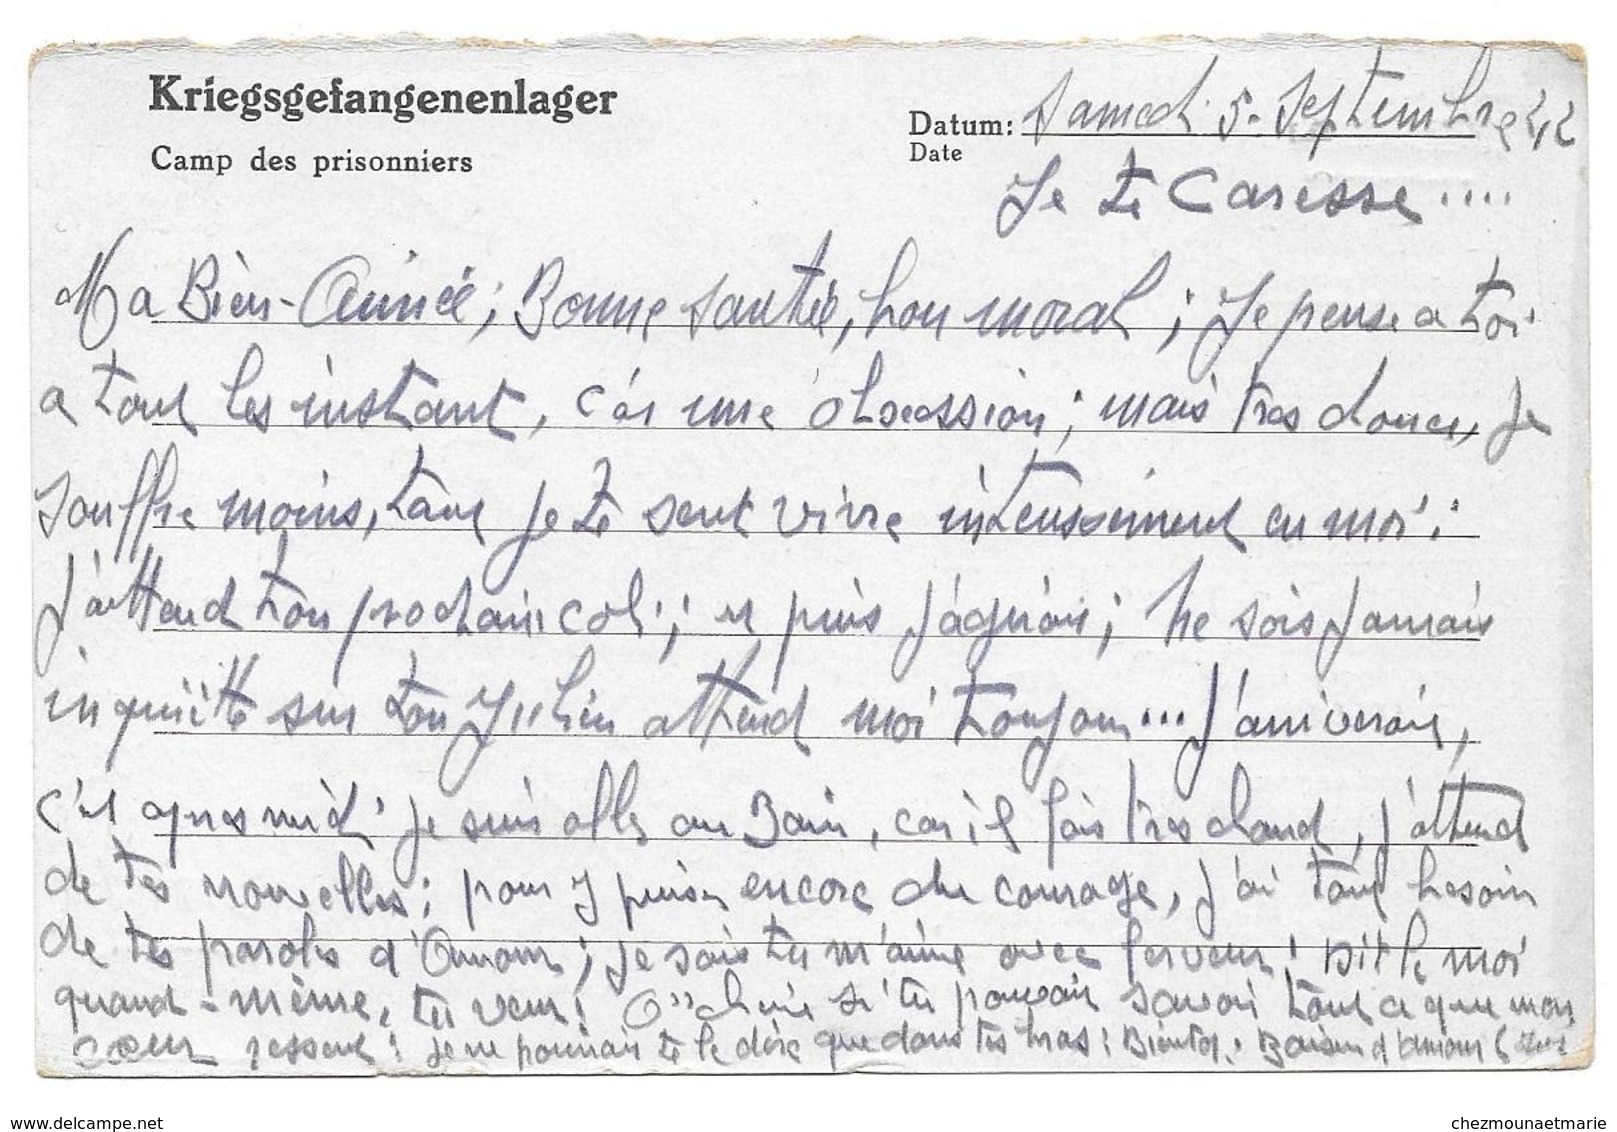 Kriegsgefangenenlager
Camp des prisonniers
Datum: Samedi 5. Septembre 42
Date
Je te Caresse....
Ma Bien-Aimée; Bonne santée, bon moral; Je pense a toi
a tout les instant, c'es une obsession; mais tres douce, Je
souffre moins, tant Je te sent vivre intenssement en moi:
J'attend ton prochain coli; et puis ne sois Jamais
inquiètte sur ton Julien attend moi toujour... J'arriverais,
c'et apres midi Je suis alle au Bain, car il fais tres chaud, J'attend
de tes nouvelles; pour y puiser encore du courage, J'ai tant besoin
de tes paroles d'Amour; je sais tu m'aime avec ferveur! Dit le moi
quand-même, tu veux! O'' cherie si tu pouvais savoir tout ce que mon
cœur ressent! je ne pourrais te le dire que dans tes bras! Bientot. Baisers d'amour
www.delcampe.net
chezmounaetmarie